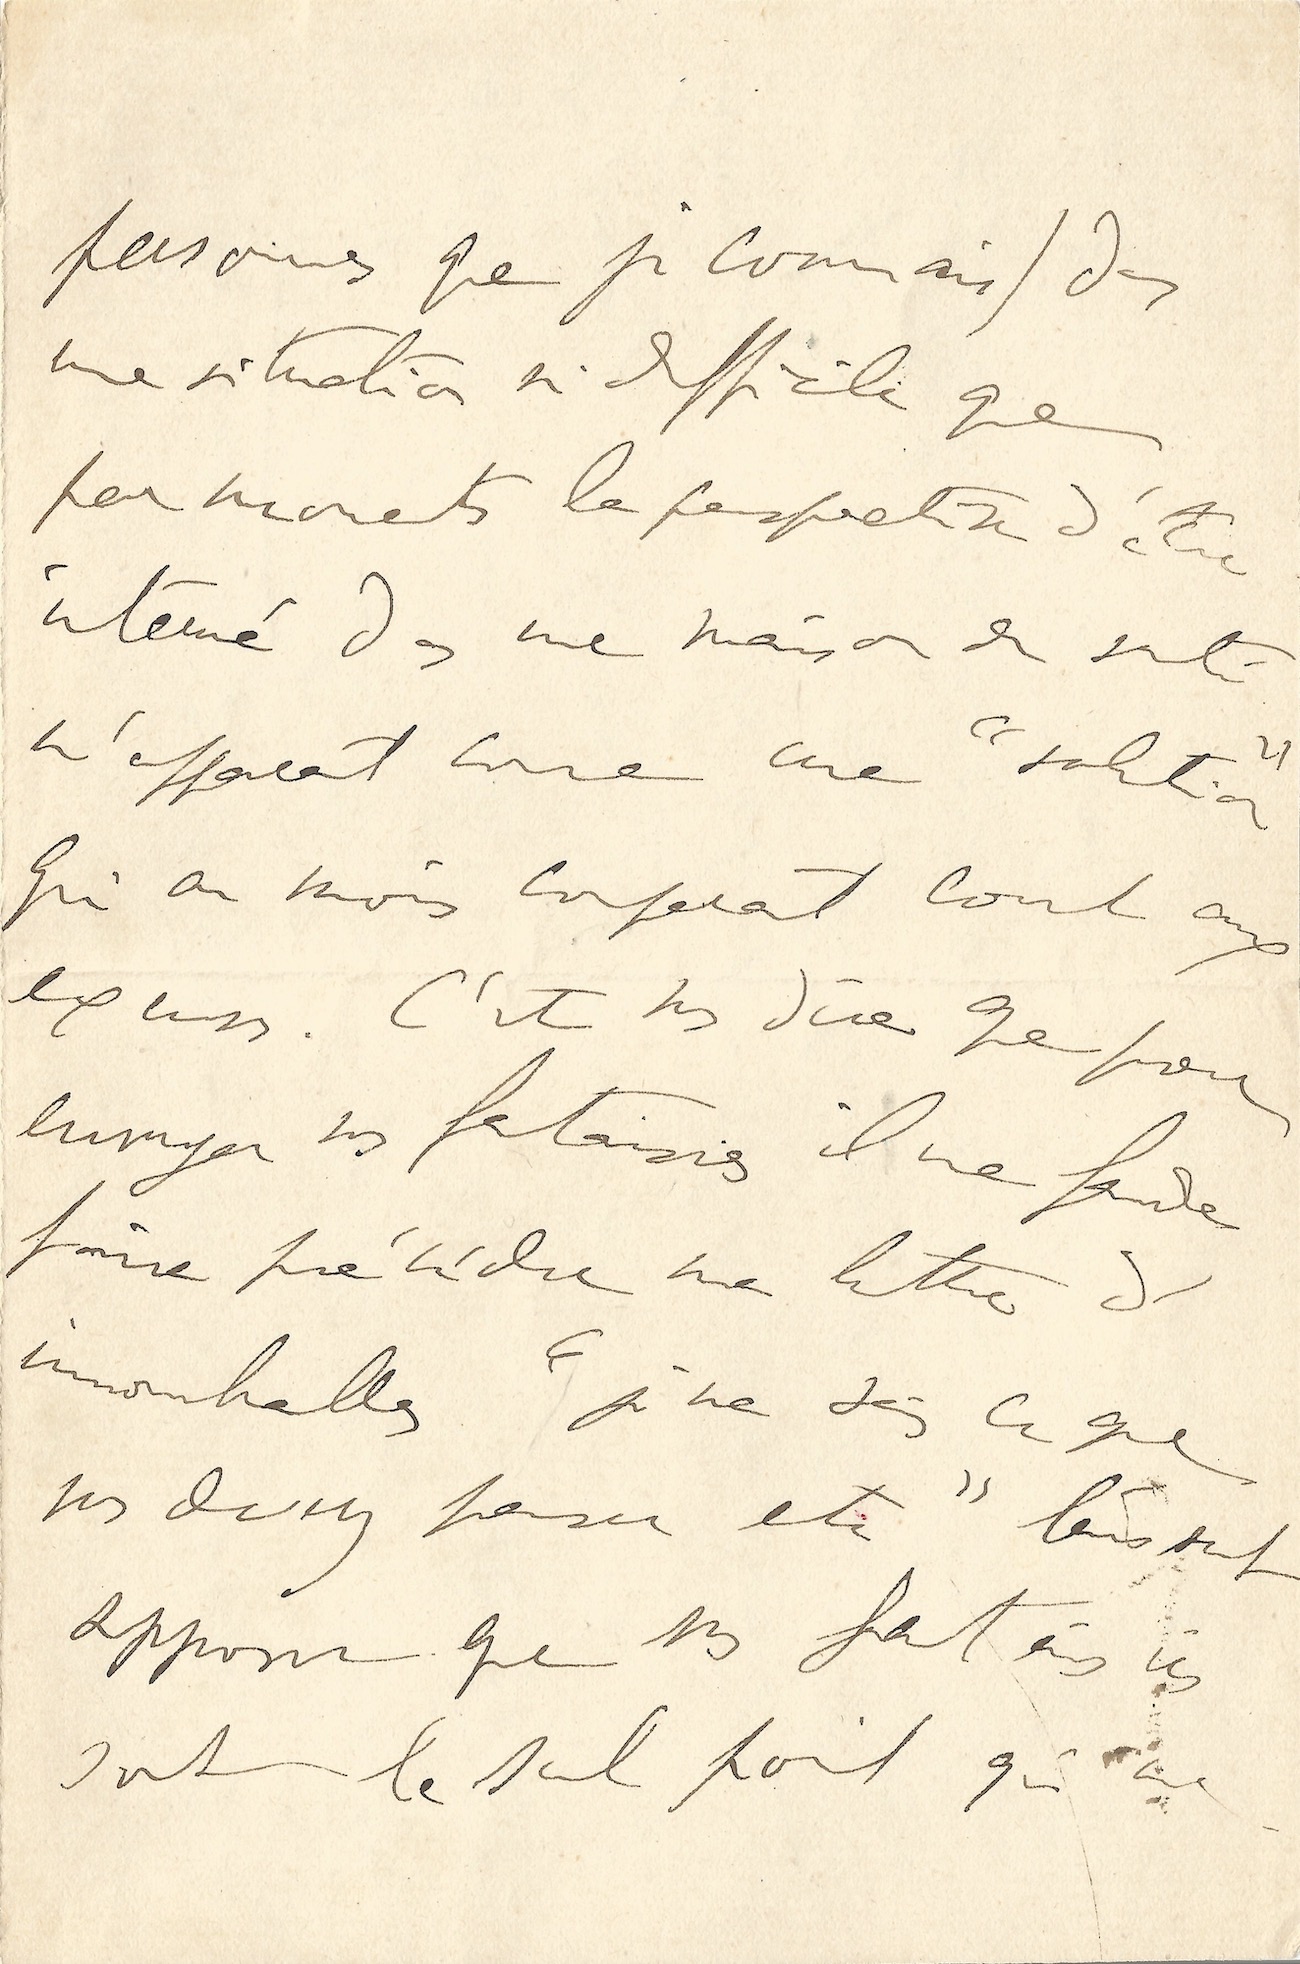 personnes que je connais) dans
une situation si difficile que
par moments la perspective d'être
interné dans une maison de santé
m'apparaît comme une "solution"
qui au moins couperait court aux
excuses. C'est vs dire que pour
envoyer vos fantaisies il ne faudra
faire précéder une lettre d'
innombrables "je ne sais ce que
vs devez penser etc" laissant
supposer que vos fantaisies
sont le seul point qui me